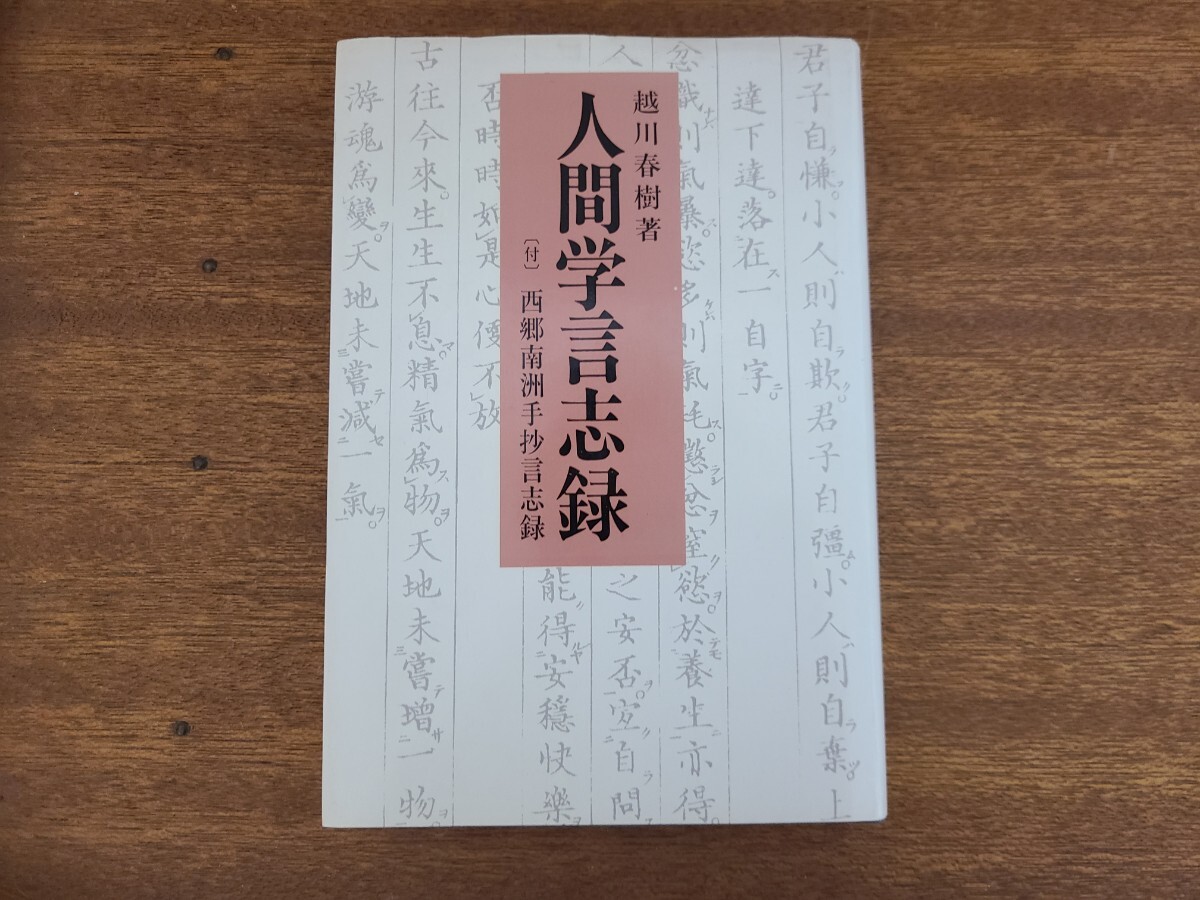 越川春樹著
人間学言志録
〔付〕 西郷南洲手抄言志録
君子自慊。小人則自欺。君子自彊。小人則自棄。上
達下達。落在一自字。
忿熾則氣暴。慾多則氣耗。懲忿窒慾。於養生亦得。
人
之安否。宜自問
能得安穩快樂
否時時如是心便不放
古往今來。生生不息。精氣爲物。天地未嘗增一物。
游魂爲變。天地未嘗減一氣。